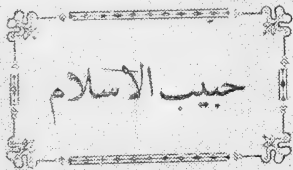 حبيب الاسلام